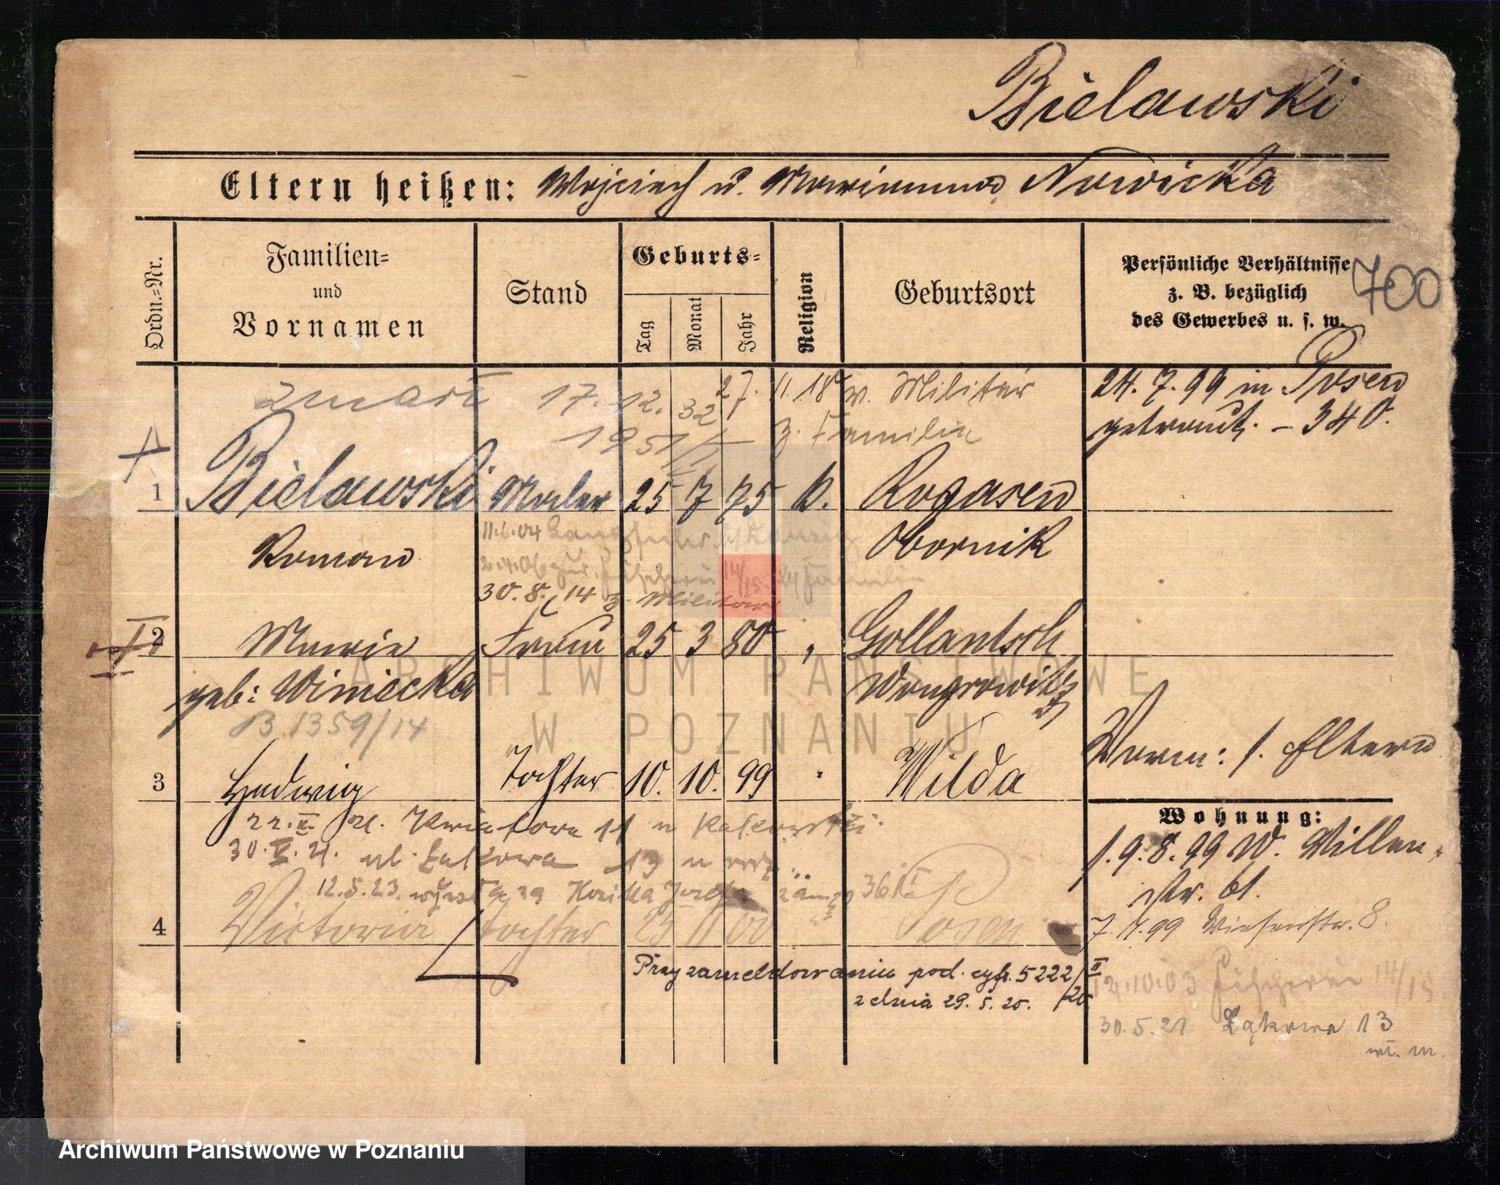 Bielawski
Eltern heißen: Wojciech u. Marianna Nowicka
Ordn.-Nr.
Familien- und Vornamen
Stand
Geburts-
Tag
Monat
Jahr
Religion
Geburtsort
Persönliche Verhältnisse
z. B. bezüglich
des Gewerbes u. s. w.
700
zmarł 17.12.32
27.11.18 v. Militär
1951
z. Familie
24.7.99 in Posen
getraut. – 340.
1 Bielawski Maler 25 7 75 k. Rogasen
Roman
Obornik
11.6.04
30.8.14 z. Militär
14/15
2 Marie Frau 25 3 80 " Gollantsch
geb: Winiecka
Wongrowitz
B 1359/14
Vorm: s. Eltern
3 Hedwig Tochter 10. 10. 99 " Wilda
Wohnung:
22.II.21. Kwiatowa 11 u
30.V.21. ul. Łąkowa 13 u
12.5.23.
s. 9.8.99 W. Villen-
str. 61.
4 Victoria Tochter Posen
7.11.99 Wiesenstr. 8.
Przy zameldowaniu pod. cyfr. 5222/II
z dnia 29.5.20. /20
12.10.03 Fischerei 14/15
30.5.21 Łąkowa 13
ARCHIWUM PAŃSTWOWE
W POZNANIU
Archiwum Państwowe w Poznaniu